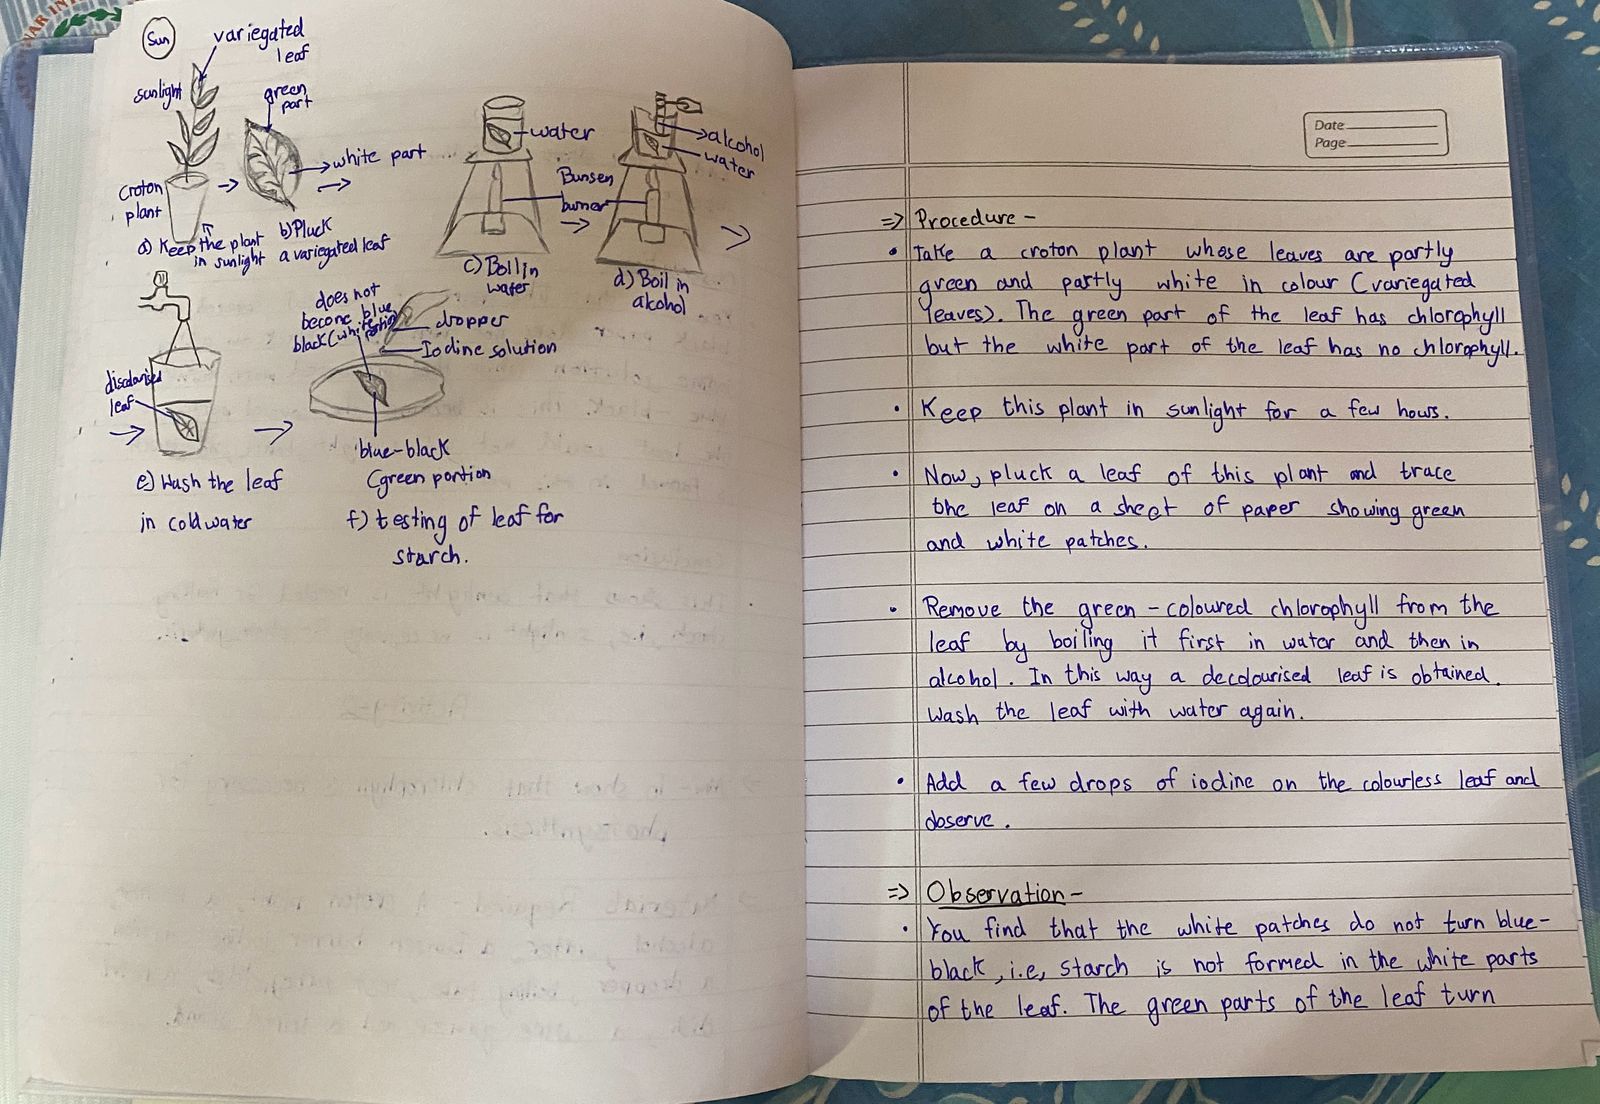 Sun
variegated
leaf
sunlight
green
part
white part
Croton
plant
a) Keep the plant
in sunlight
b) Pluck
a variegated leaf
water
Bunsen
burner
c) Boil in
water
alcohol
water
d) Boil in
alcohol
discolorised
leaf
e) Wash the leaf
in cold water
does not
become blue
black (white portion
dropper
Iodine solution
blue-black
(green portion
f) testing of leaf for
starch.
Date
Page
=> Procedure -
• Take a croton plant whose leaves are partly
green and partly white in colour (variegated
leaves). The green part of the leaf has chlorophyll
but the white part of the leaf has no chlorophyll.
• Keep this plant in sunlight for a few hours.
• Now, pluck a leaf of this plant and trace
the leaf on a sheet of paper showing green
and white patches.
• Remove the green - coloured chlorophyll from the
leaf by boiling it first in water and then in
alcohol. In this way a decolourised leaf is obtained.
Wash the leaf with water again.
• Add a few drops of iodine on the colourless leaf and
observe.
=> Observation -
• You find that the white patches do not turn blue-
black, i.e, starch is not formed in the white parts
of the leaf. The green parts of the leaf turn